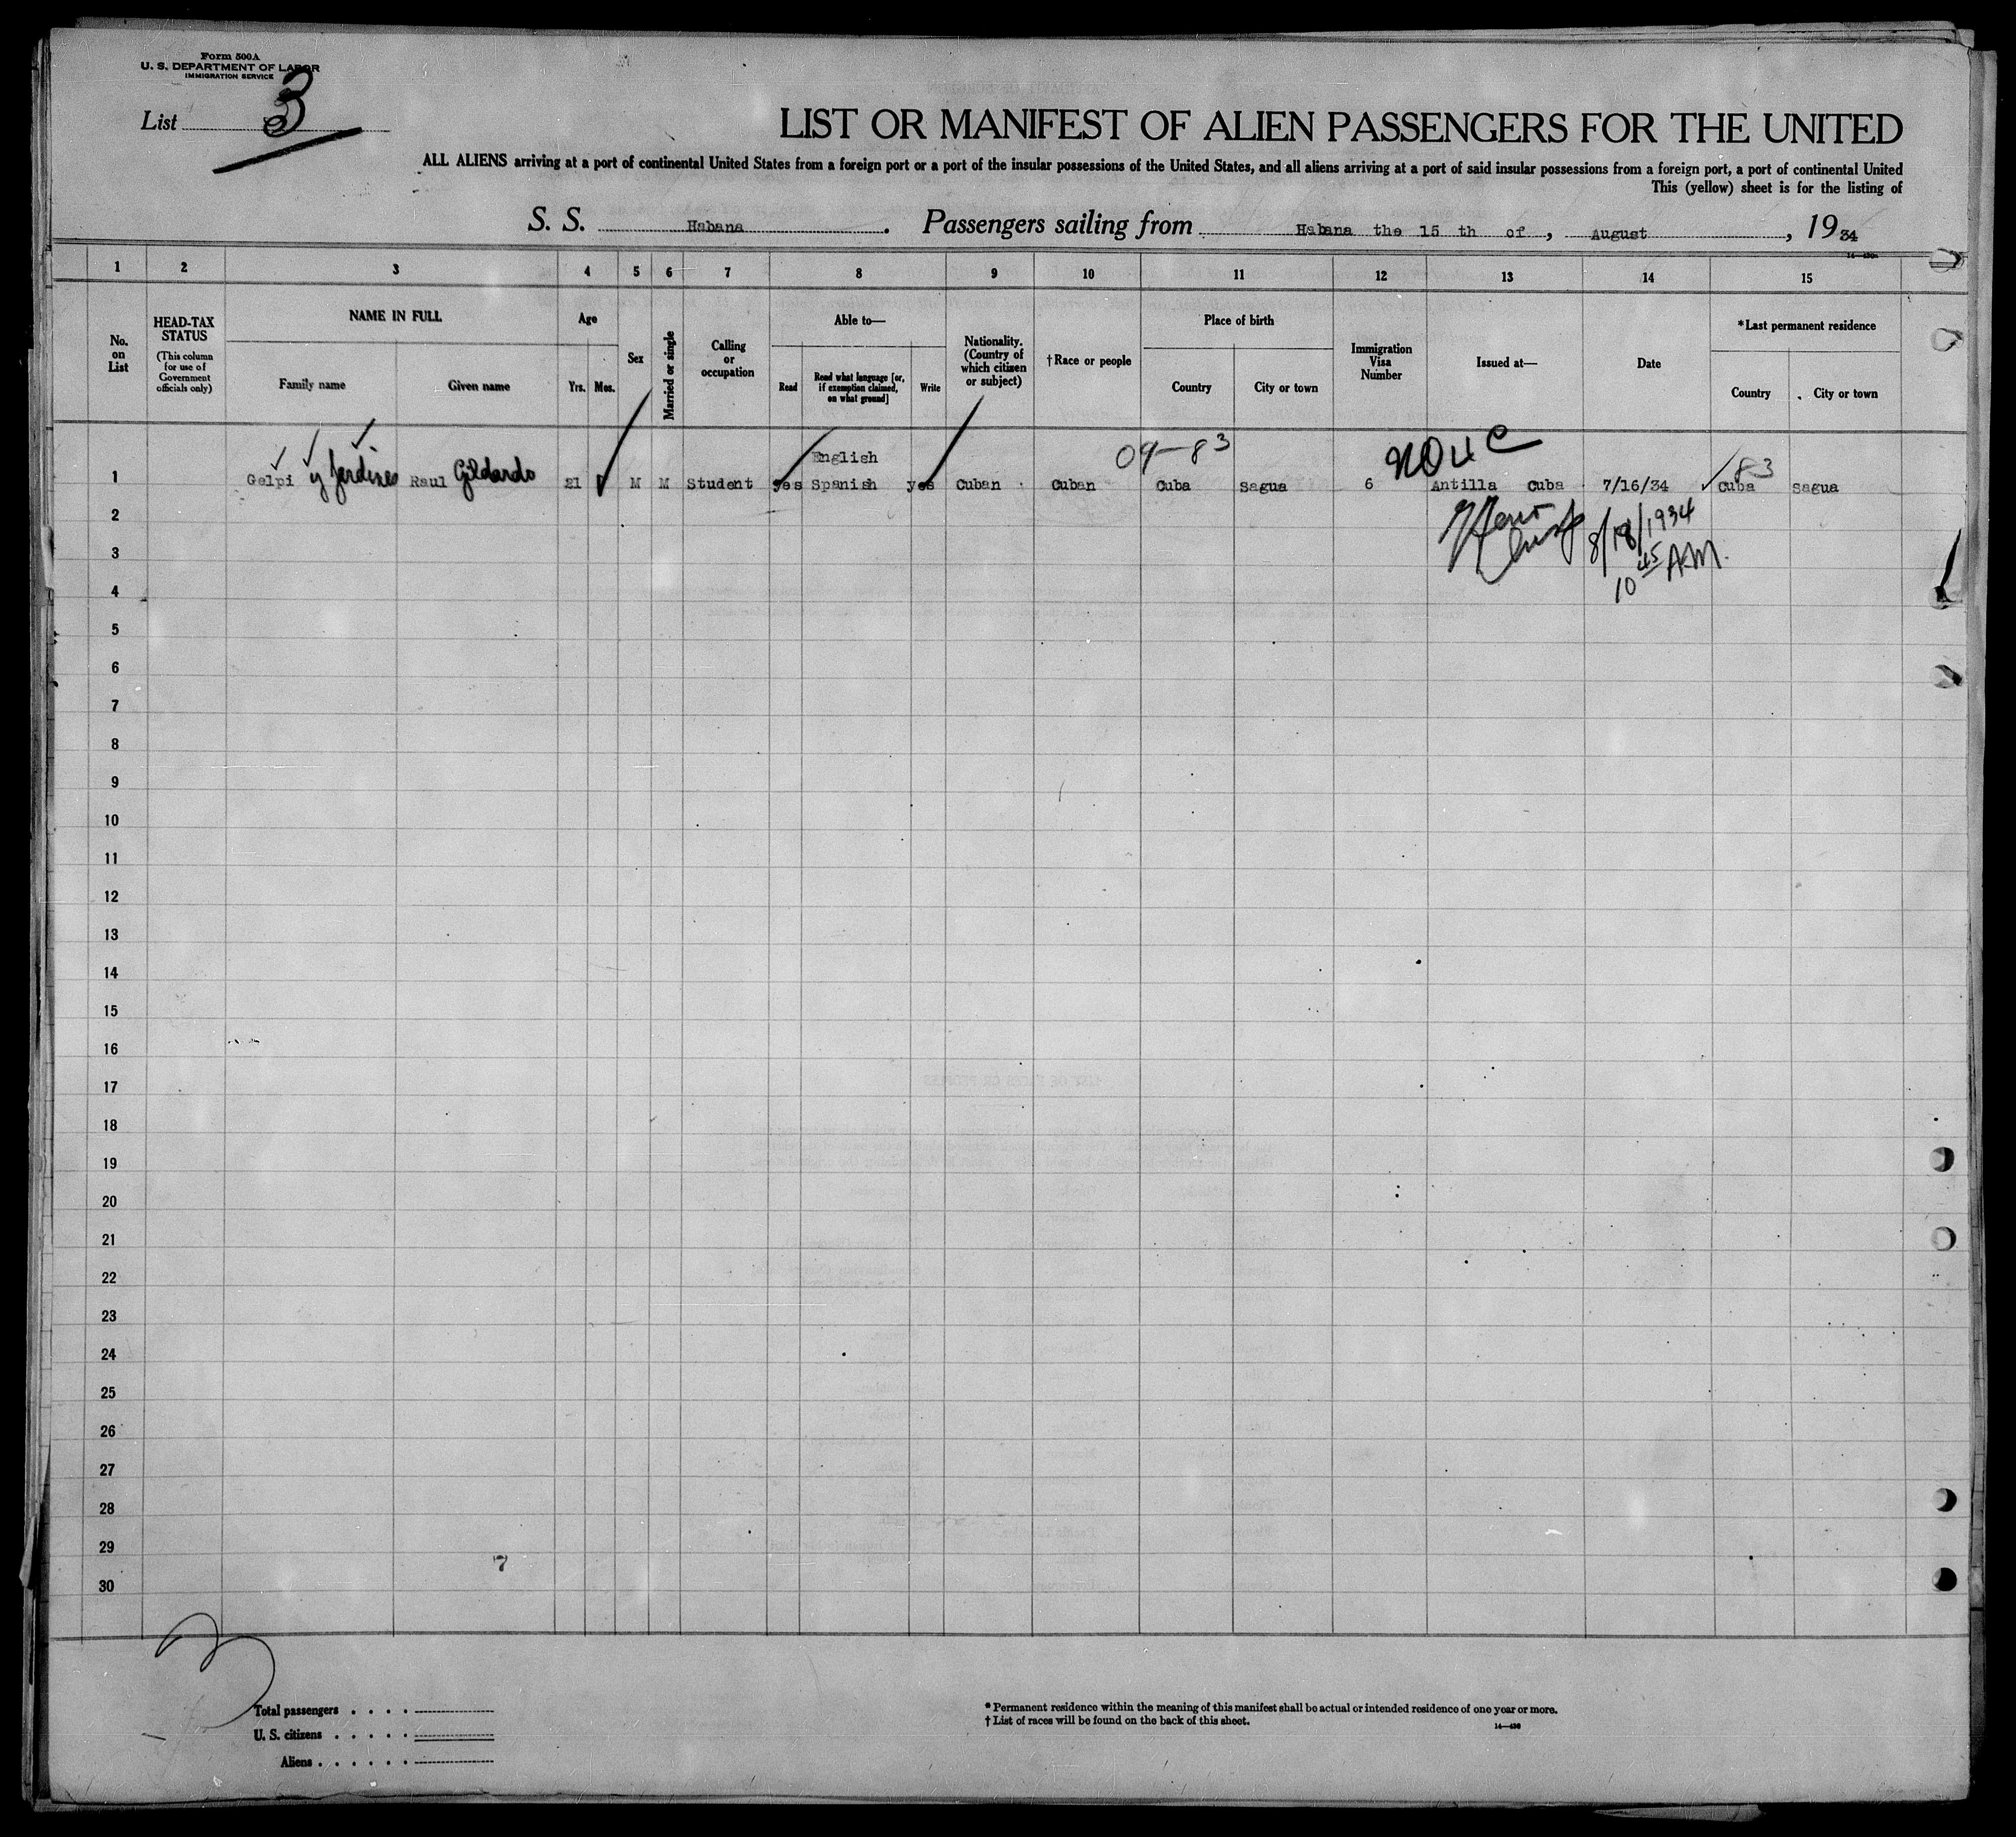 Form 500A
U. S. DEPARTMENT OF LABOR
IMMIGRATION SERVICE
List 3
LIST OR MANIFEST OF ALIEN PASSENGERS FOR THE UNITED
ALL ALIENS arriving at a port of continental United States from a foreign port or a port of the insular possessions of the United States, and all aliens arriving at a port of said insular possessions from a foreign port, a port of continental United
This (yellow) sheet is for the listing of
S. S. Habana. Passengers sailing from Habana the 15 th of, August, 19 34
1 2 3 4 5 6 7 8 9 10 11 12 13 14 15
No. on List
HEAD-TAX STATUS
(This column for use of Government officials only)
NAME IN FULL
Family name
Given name
Age
Yrs. Mos.
Sex
Married or single
Calling or occupation
Able to—
Read
Read what language [or, if exemption claimed, on what ground]
Write
Nationality. (Country of which citizen or subject)
†Race or people
Place of birth
Country
City or town
Immigration Visa Number
Issued at—
Date
*Last permanent residence
Country
City or town
09-83
83
English
1 Gelpi y Jardines Raul Gildardo 21 M M Student yes Spanish yes Cuban Cuban Cuba Sagua 6 Antilla Cuba 7/16/34 Cuba Sagua
8/18/1934
10 45 A.M.
2
3
4
5
6
7
8
9
10
11
12
13
14
15
16
17
18
19
20
21
22
23
24
25
26
27
28
29
30
7
Total passengers
U. S. citizens
Aliens
* Permanent residence within the meaning of this manifest shall be actual or intended residence of one year or more.
† List of races will be found on the back of this sheet.
14—430